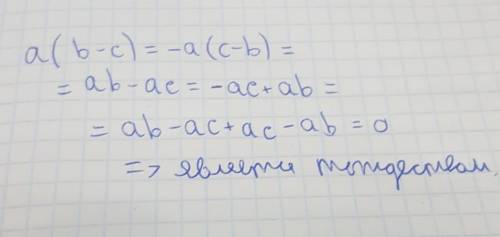 a(b-c) = -a(c-b) =
= ab-ac = -ac+ab =
= ab-ac+ac-ab = 0
=> является тождеством.